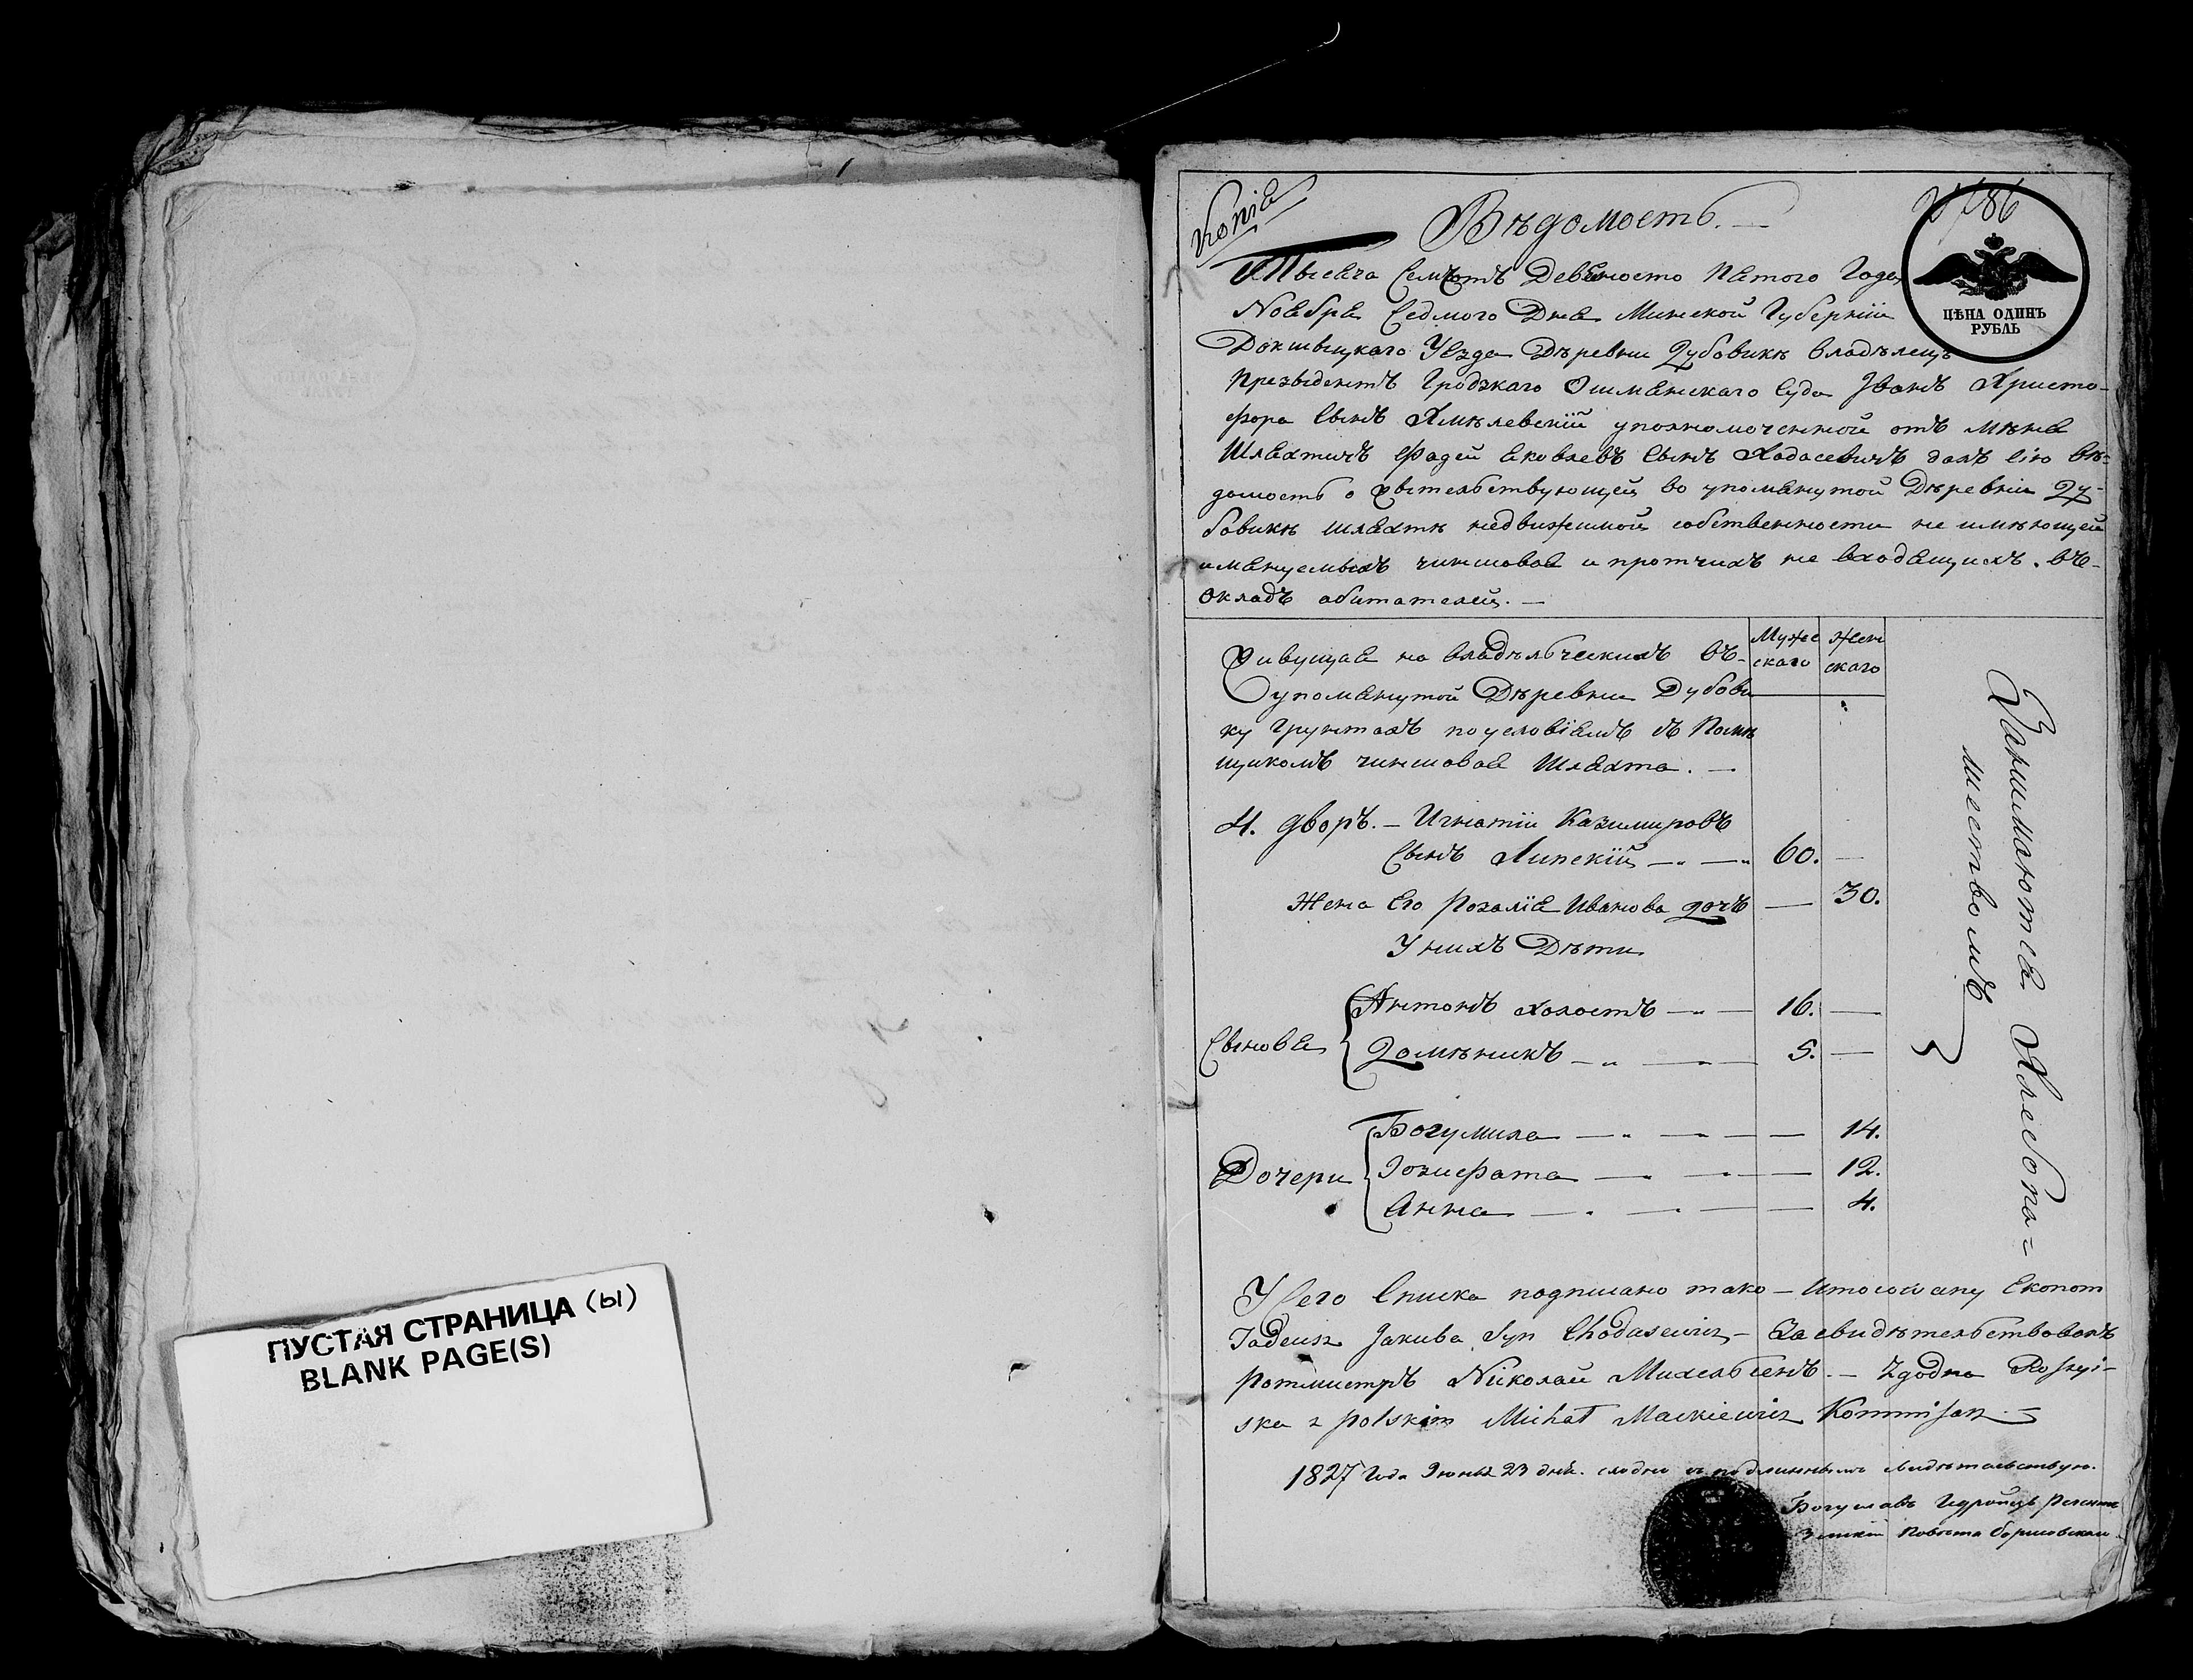 ПУСТАЯ СТРАНИЦА (ы)
BLANK PAGE(S)
Копія
Вѣдомость. —
86
ЦѢНА ОДИНЪ
РУБЛЬ
Тысяча Семъсотъ Девѣносто Пятого Года
Ноября Седмого Дня Минской Губерніи
Докшыцкаго Уѣзда Дѣревни Дубовикъ владѣлецъ
Презыдентъ Гродзкаго Ошмянскаго Суда Іванъ Христо-
фора Сынъ Хмѣлевскій уполномоченной отъ мѣня
Шляхтичъ Фадей Яковлевъ Сынъ Ходасевичъ далъ сію вѣ-
домость о жытельствующей во упомянутой Дѣревни Ду-
бовикѣ шляхтѣ недвижимой собственности не имѣющей
имянуемыхъ чиншовая и протчихъ не входящихъ въ-
окладъ абитателей. —
Живущая на владѣльческихъ въ-
упомянутой Дѣревни Дубови
ку Грунтахъ по условіямъ съ Помѣ
щикомъ чиншовая Шляхта. —
Муже
скаго
Жен
скаго
4. дворъ. — Игнатіи Казимировъ
Сынъ Липскій — 60. —
Жена Его Розалія Иванова дочъ — 30.
У нихъ Дѣти
Сыновья
Антонъ холостъ — 16. —
Домѣникъ — 5. —
Дочери
Богумила — 14.
Іозефата — 12.
Анна — 4.
Занимаются Хлебопа=
шествомъ
У сего Списка подписано тако — Umocowany Ekonom
Tadeusz Jakuba Syn Chodasewicz — Засвидѣтельствовалъ
Ротмистръ Николай Михельсенъ. — Zgodna Rossyi-
ska z polskim Michał Mackiewicz Kommisarz —
1827 Года Іюня 23 дня. сходно съ подлиннымъ свидѣтельствую.
Богуславъ
Земскій Повѣта Борисовскаго